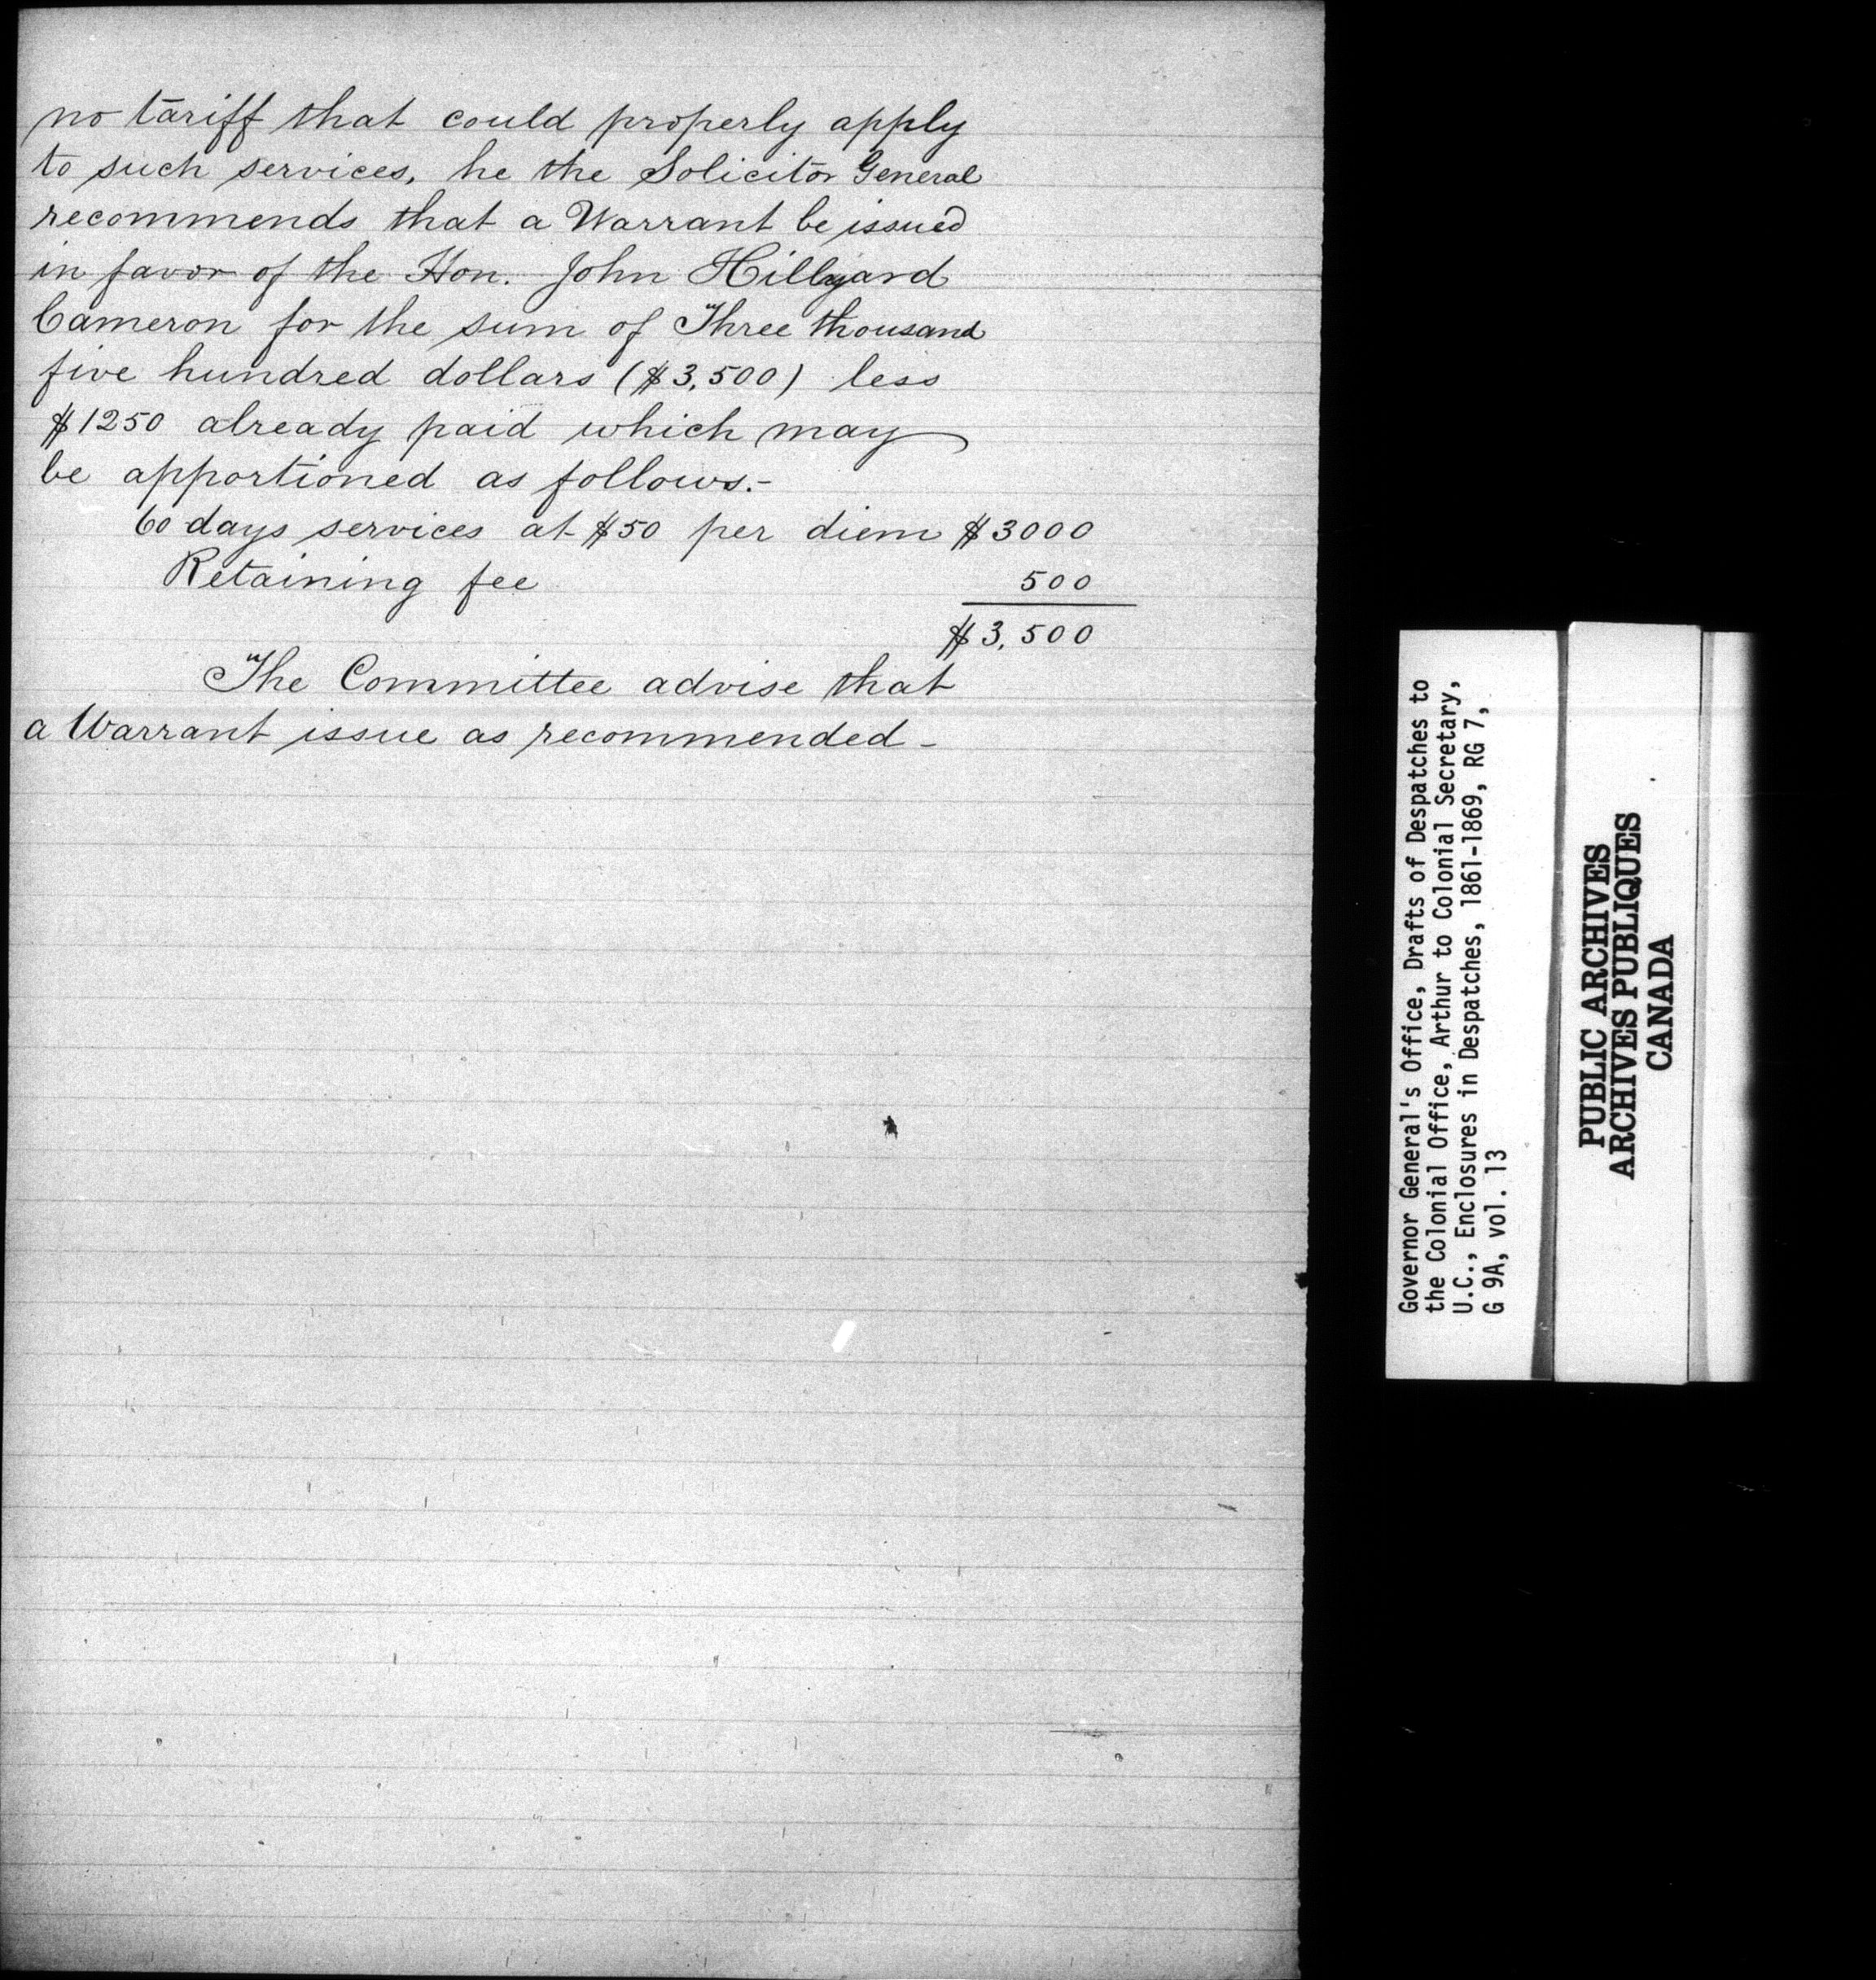 no tariff that could properly apply
to such services, he the Solicitor General
recommends that a Warrant be issued
in favor of the Hon. John Hillyard
Cameron for the sum of Three thousand
five hundred dollars ($3,500) less
$1250 already paid which may
be apportioned as follows.-
60 days services at $50 per diem $3000
Retaining fee 500
$3,500
The Committee advise that
a Warrant issue as recommended -
Governor General's Office, Drafts of Despatches to
the Colonial Office, Arthur to Colonial Secretary,
U.C., Enclosures in Despatches, 1861-1869, RG 7,
G 9A, vol. 13
PUBLIC ARCHIVES
ARCHIVES PUBLIQUES
CANADA